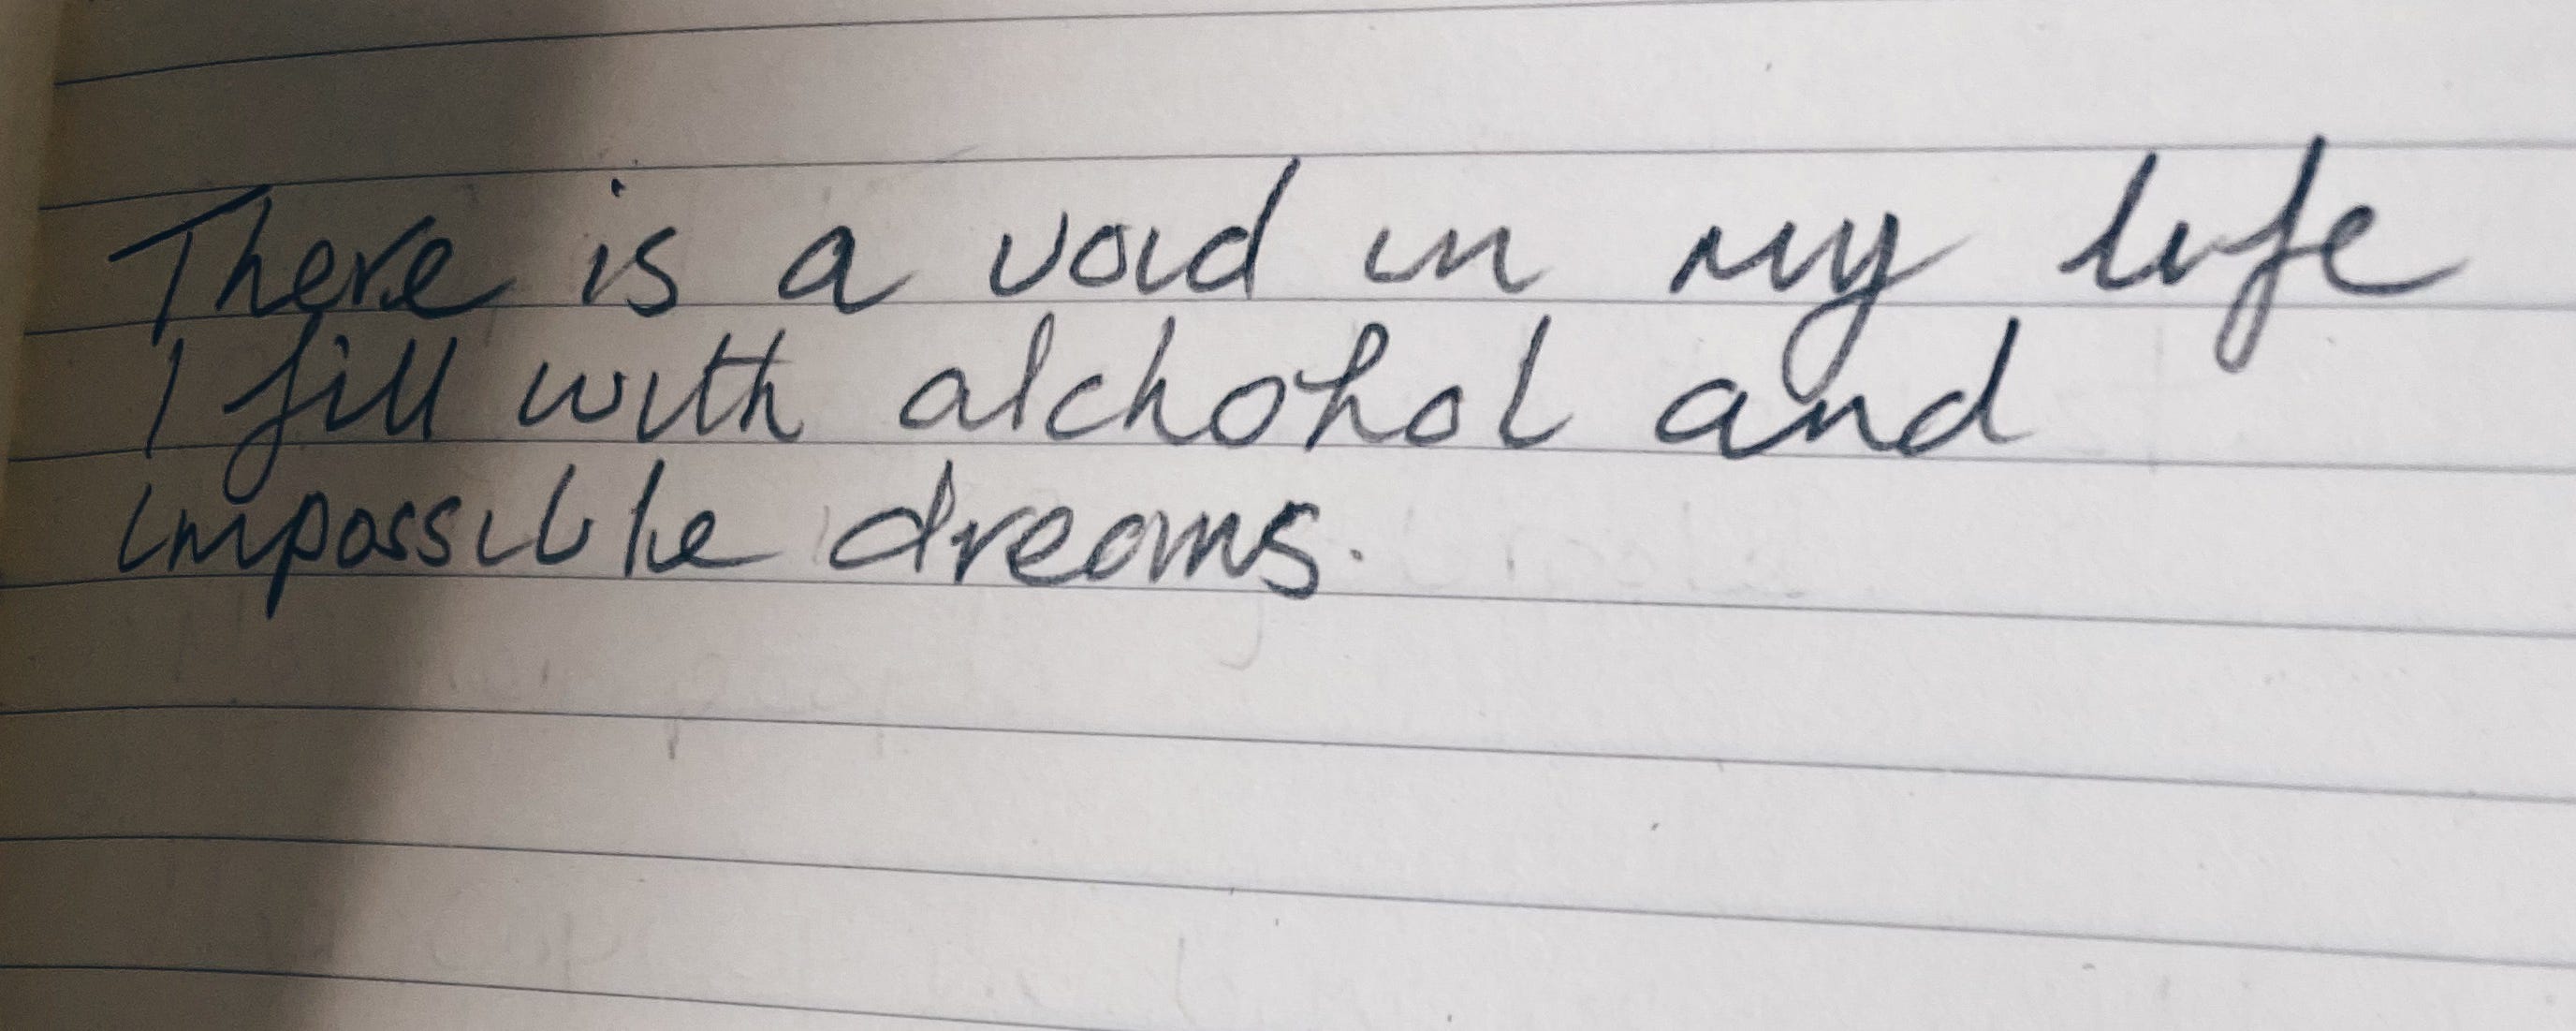 There is a void in my life
I fill with alchohol and
impossible dreams.